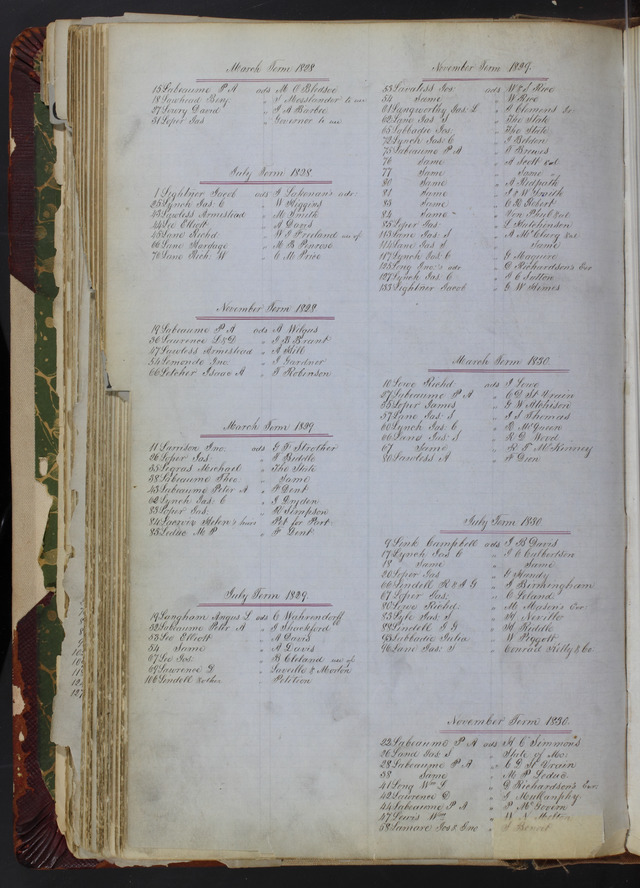 March Term 1828
15 Labeaume P A ads M O Bledsoe
18 Lawhead Benj " J Mosslander to use
27 Lowry David " J A Barbee
31 Loper Jas " Governor to use
July Term 1828
1 Lightner Jacob ads A
25 Lynch Jas. C " W Higgins
43 Lawless Armestead " M Smith
44 Lee Elliott " A Davis
45 Lane Richd " W S Frieland use of
66 Lane Hardage " M B Penrose
70 Lane Rich. W " C M Price
November Term 1828
19 Labeaume P A ads A Wilgus
36 Lawrence L & D " J B Brant
47 Lawless Armestead " A Hill
54 Lemonde Jno. " J Gardner
66 Letcher Isaac A " T Robinson
March Term 1829
11 Larrison Jno. ads E D Strother
26 Loper Jas. " T Biddle
35 Legras Michael " The State
38 Labeaume Theo " Same
43 Labeaume Peter A " F Dent
62 Lynch Jas. C " J Dryden
83 Loper Jas. " R Simpson
84 Lacroix Helen's heirs Pet for Part
85 Leduc M P " F Dent
July Term 1829.
19 Langham Angus L ads C Wahrendorff
32 Labeaume Peter A " J Shackford
53 Lee Elliott " A Davis
54 Same " A Davis
67 Lee Jos. " B Cleland use of
69 Lawrence D " Saville & Morton
106 Lendell & other " Petition
November Term 1829.
53 Lavaless Jos. ads W & J Rive
54 Same " W Rive
61 Langworthy Jas L " J Clemens Jr
62 Lane Jas S " The State
65 Labbadie Jos. " The State
72 Lynch Jas. C " J Belden
75 Labeaume P A " B Brewis
76 Same " A Scott Ext
77 Same " Same
80 Same " A Redpath
81 Same " J & W Smith
83 Same " C R Gebert
84 Same "
85 Loper Jas " L Hutchinson
113 Lane Jas S " A McElroy Ext
114 Lane Jas S " Same
117 Lynch Jas C " C Maguire
125 Long Jno's adr " G Richardson's Exr
127 Lynch Jas. C. " J C Sutton
133 Lightner Jacob " G W Himes
March Term 1830.
10 Lowe Richd ads J Lowe
27 Labeaume P A " C D St Vrain
35 Loper James " G W Atcheson
37 Lane Jas. S " J S Thomas
60 Lynch Jas. C " R McQueen
66 Lane Jas. S " R D Wood
67 Same " R T McKinney
80 Lawless A " F Deen
July Term 1830
9 Link Campbell ads J B Davis
17 Lynch Jas C " J C Culbertson
18 Same " Same
20 Loper Jas " C Hundy
66 Lendell R & A G " J Bermingham
67 Loper Jas. " C Leland
80 Lowe Richd " M Mason's Exr
83 Lyle Jas. S " H Neville
88 Lendell J G " W Riddle
93 Labbadie Julia " W Piggott
96 Lane Jas. S " Conrad Kelly & Co
November Term 1830.
22 Labeaume P A ads H C Simmons
26 Land Jas. S " State of Mo:
28 Labeaume P A " C D St Vrain
38 Same " M P Leduc
41 Long Wm L " G Richardson's Exr.
42 Lawrence D " J Mullanphy
44 Labeaume P A " P McGovern
47 Lewis Wm " W N
58 Lamare Jos & Eno " F Benoit